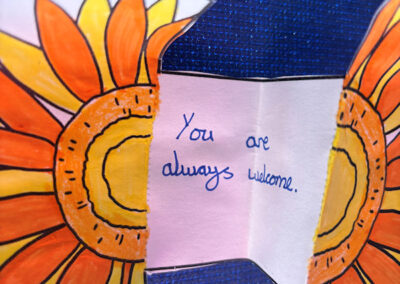 You are
always welcome.